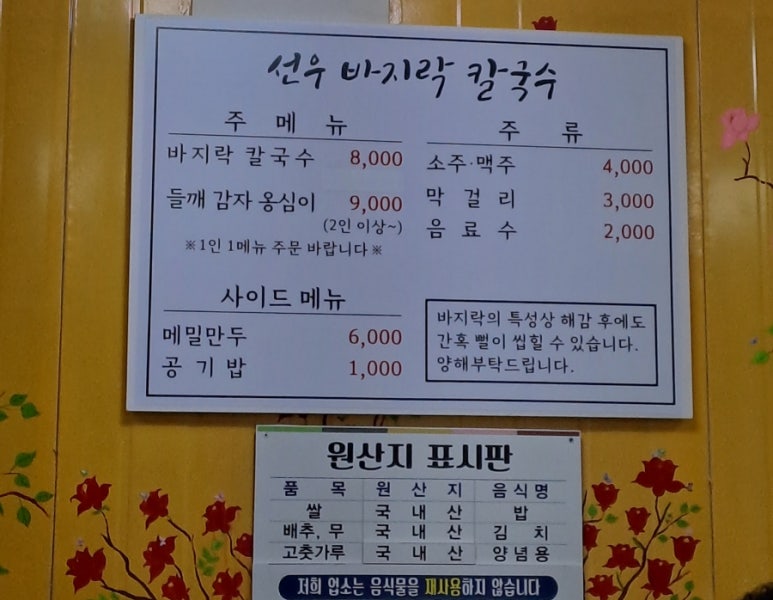 선우 바지락 칼국수
주 메 뉴
바지락 칼국수 8,000
들깨 감자 옹심이 9,000
(2인 이상~)
※1인 1메뉴 주문 바랍니다※
사이드 메뉴
메밀만두 6,000
공 기 밥 1,000
주 류
소주·맥주 4,000
막 걸 리 3,000
음 료 수 2,000
바지락의 특성상 해감 후에도
간혹 뻘이 씹힐 수 있습니다.
양해부탁드립니다.
원산지 표시판
품 목 원 산 지 음식명
쌀 국 내 산 밥
배추, 무 국 내 산 김 치
고춧가루 국 내 산 양념용
저희 업소는 음식물을 재사용하지 않습니다